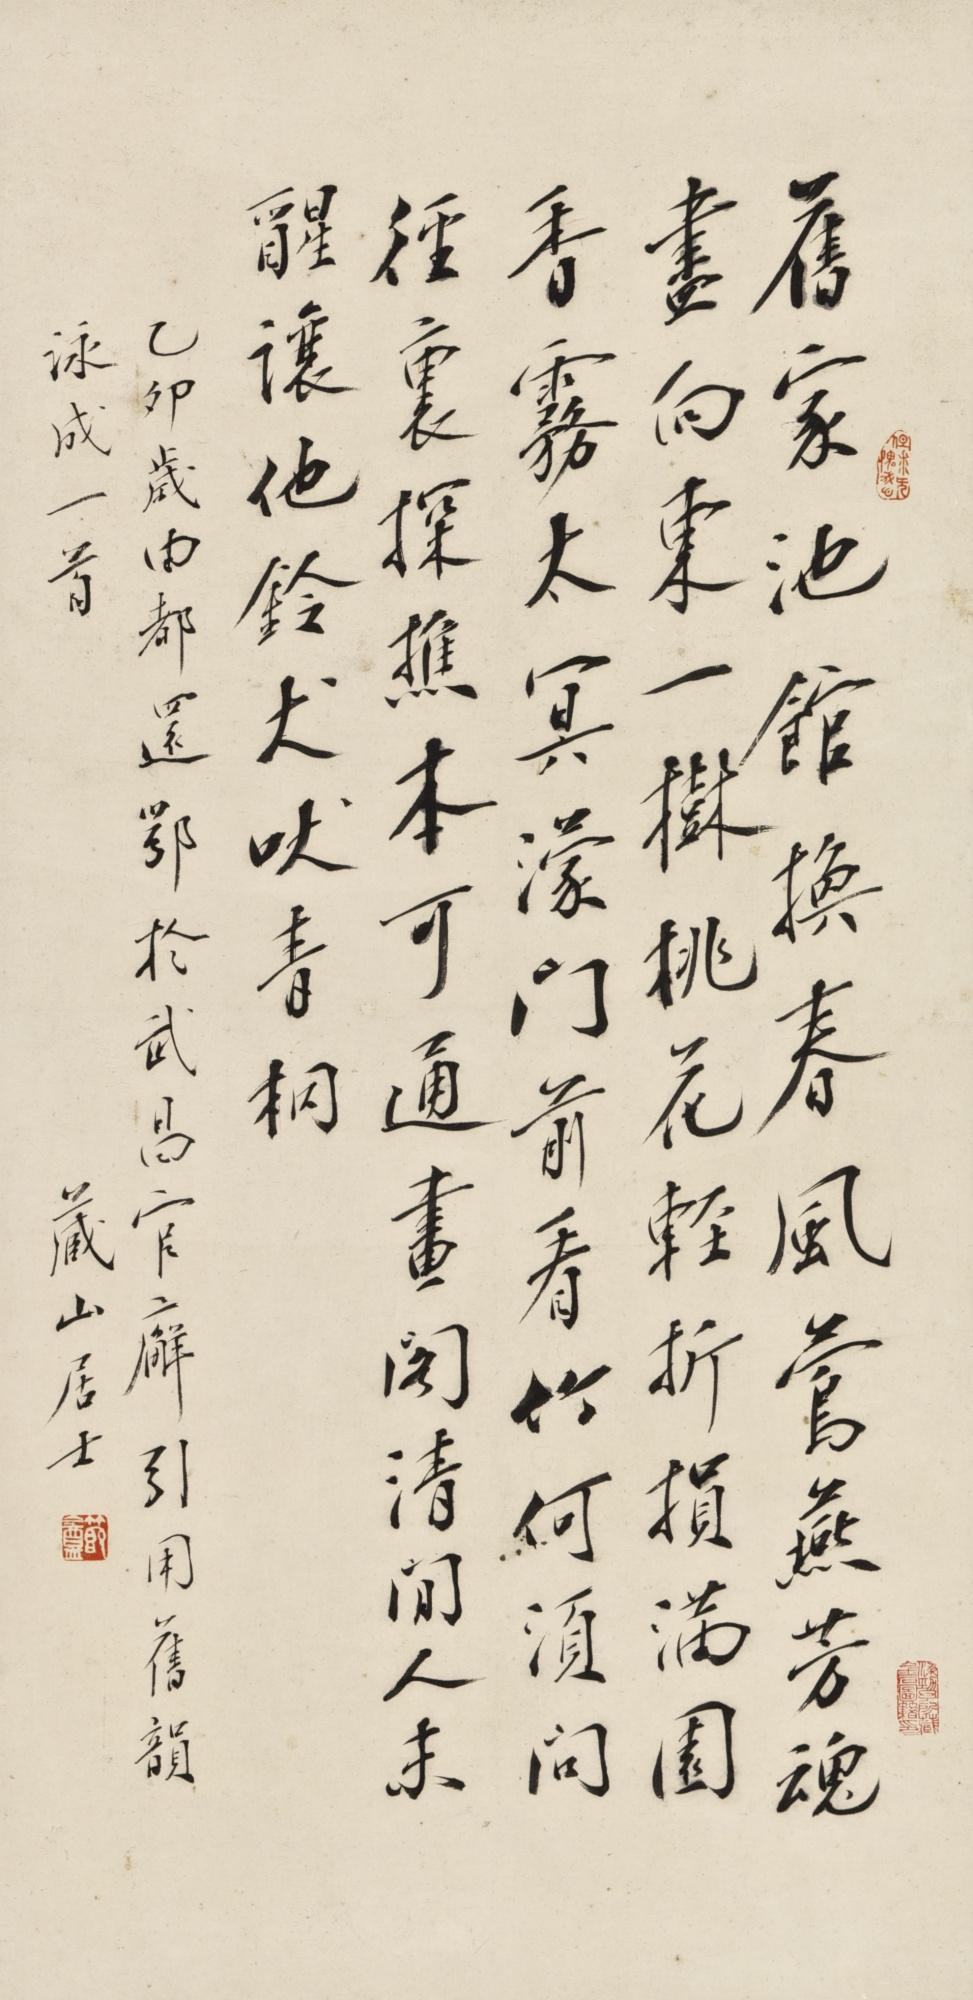 舊家池館換春風鶯燕芳魂
盡向東一樹桃花輕折損滿園
香霧太冥濛門前看竹何須問
徑裏探樵本可通畫閣清閒人未
醒讓他鈴犬吠青桐
乙卯歲由都還鄂於武昌官廨引用舊韻
詠成一首
藏山居士